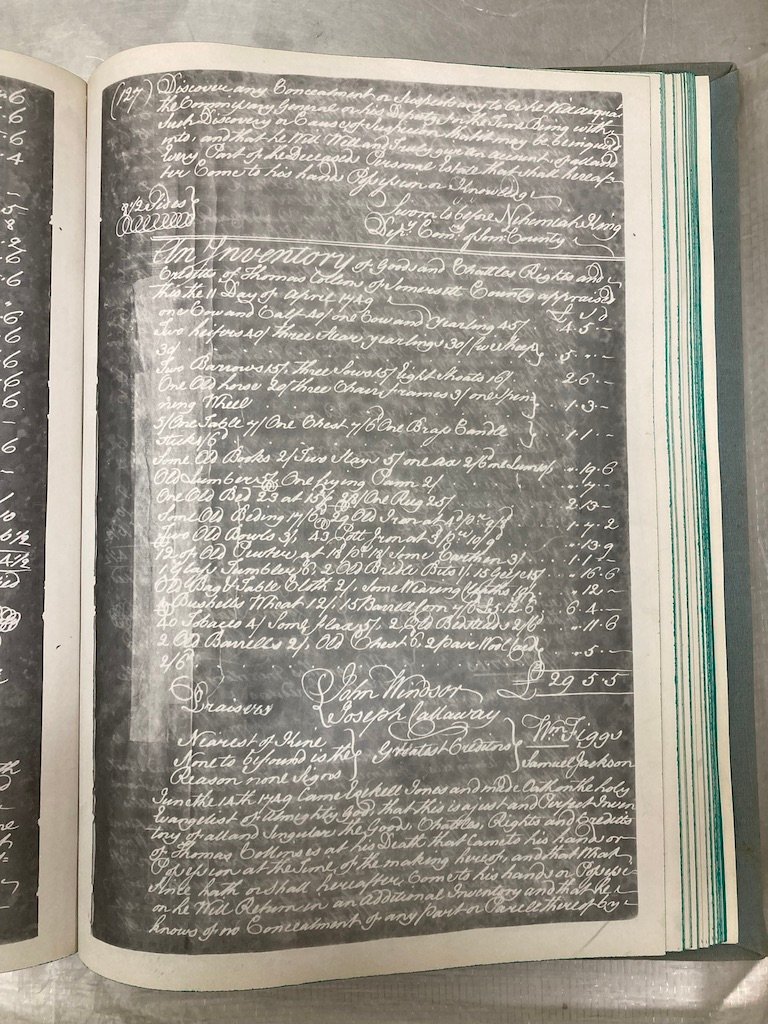 (127) Discover any Concealment or Suspect any to be he Will acquaint
the Commissary General or his Deputy for the Time Being with
Such Discovery or Cause of Suspicion that it may be Enquired
into, and that he Will Well and Truly give an account of all and
Every Part of the Deceased Personal Estate that Shall hereaf=
ter Come to his hands Possession or Knowledge
3 1/2 Sides Sworn to before Nehemiah King
Depy. Comry. of Som. County
An Inventory of Goods and Chattles Rights and
Creditts of Thomas Collens of Somersett County appraised
this the 11 Day of April 1749 £ S d
one Cow and Calf 40/ one Cow and yearling 45/ 4.5.-
Two heifers 40/ Three Stear yearlings 30/ five Sheep
30/ 5.„.-
Two Barrows 15/. Three Sows 15/ Eight Shoats 16/ 2.6.-
One Old horse 20/ three Chair frames 3/ one Spin
ning Wheel 1.3.-
5/ One Table 7/ One Chest 7/6 One Brass Candle
Stick 1/6 1.1.-
Some Old Books 2/ Two Slays 5/ one ax 2/6 one „.19.6
Old Lumber 5/ One frying Pann 2/ „.7.-
One Old Bed 23 at One Rug 25/ 2.13.-
Some Old Beding 17/6 29 Old Iron at 4d pr. 9/8 1.7.2
Two Old Bowls 3/ 43 Pott Iron at 3 pr. 10/9 „.13.9
12 of Old Pewter at 18 pr. 18/ Some Earthen 3/ 1.1.-
1 Glass Tumbler 6. 2 Old Bridle Bits 1/. 15 Geese 15/ „.16.6
Old Bag & Table Cloth 2/. Some Wearing Cloths 10/ „.12.-
Bushells Wheat 12/. 15 Barrells Corn 7/6 £5.12.6 6.4.-
40 Tobaco 4/ Some flax 5/. 2 Old Bedsteds 2/6 „.11.6
2 Old Barrells 2/. Old Chest 6. 2 pare Wool Cards
2/6 „.5.-
£ 29 5.5
Praisers John Windsor
Joseph Callaway
Nearest of Kine Wm. Figgs
None to be found is the Greatest Creditors
Reason none Signs Samuel Jackson
June the 14th 1749 Came Ezekell Jones and made Oath on the holy
Evangelist of Almighty God, that this is a just and Perfect Inven
tory of all and Singular the Goods, Chattles, Rights and Creditts
of Thomas Collens as at his Death that Came to his hands or
Possession at the Time of the making hereof, and that What
Since hath or Shall hereafter Come to his hands or Possessi=
on he Will Return in an Additional Inventory and that he
knows of no Concealment of any part or Parcell thereof by